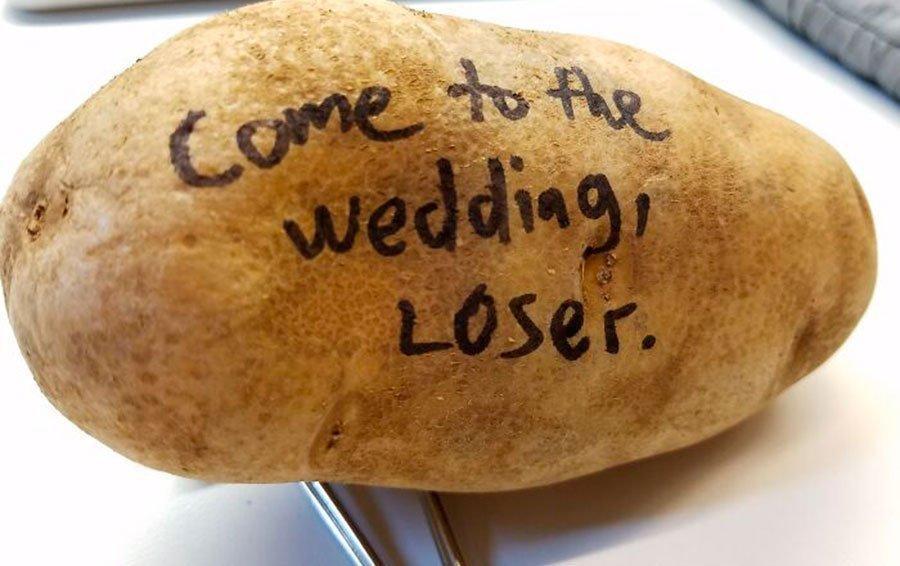 Come to the
wedding,
Loser.